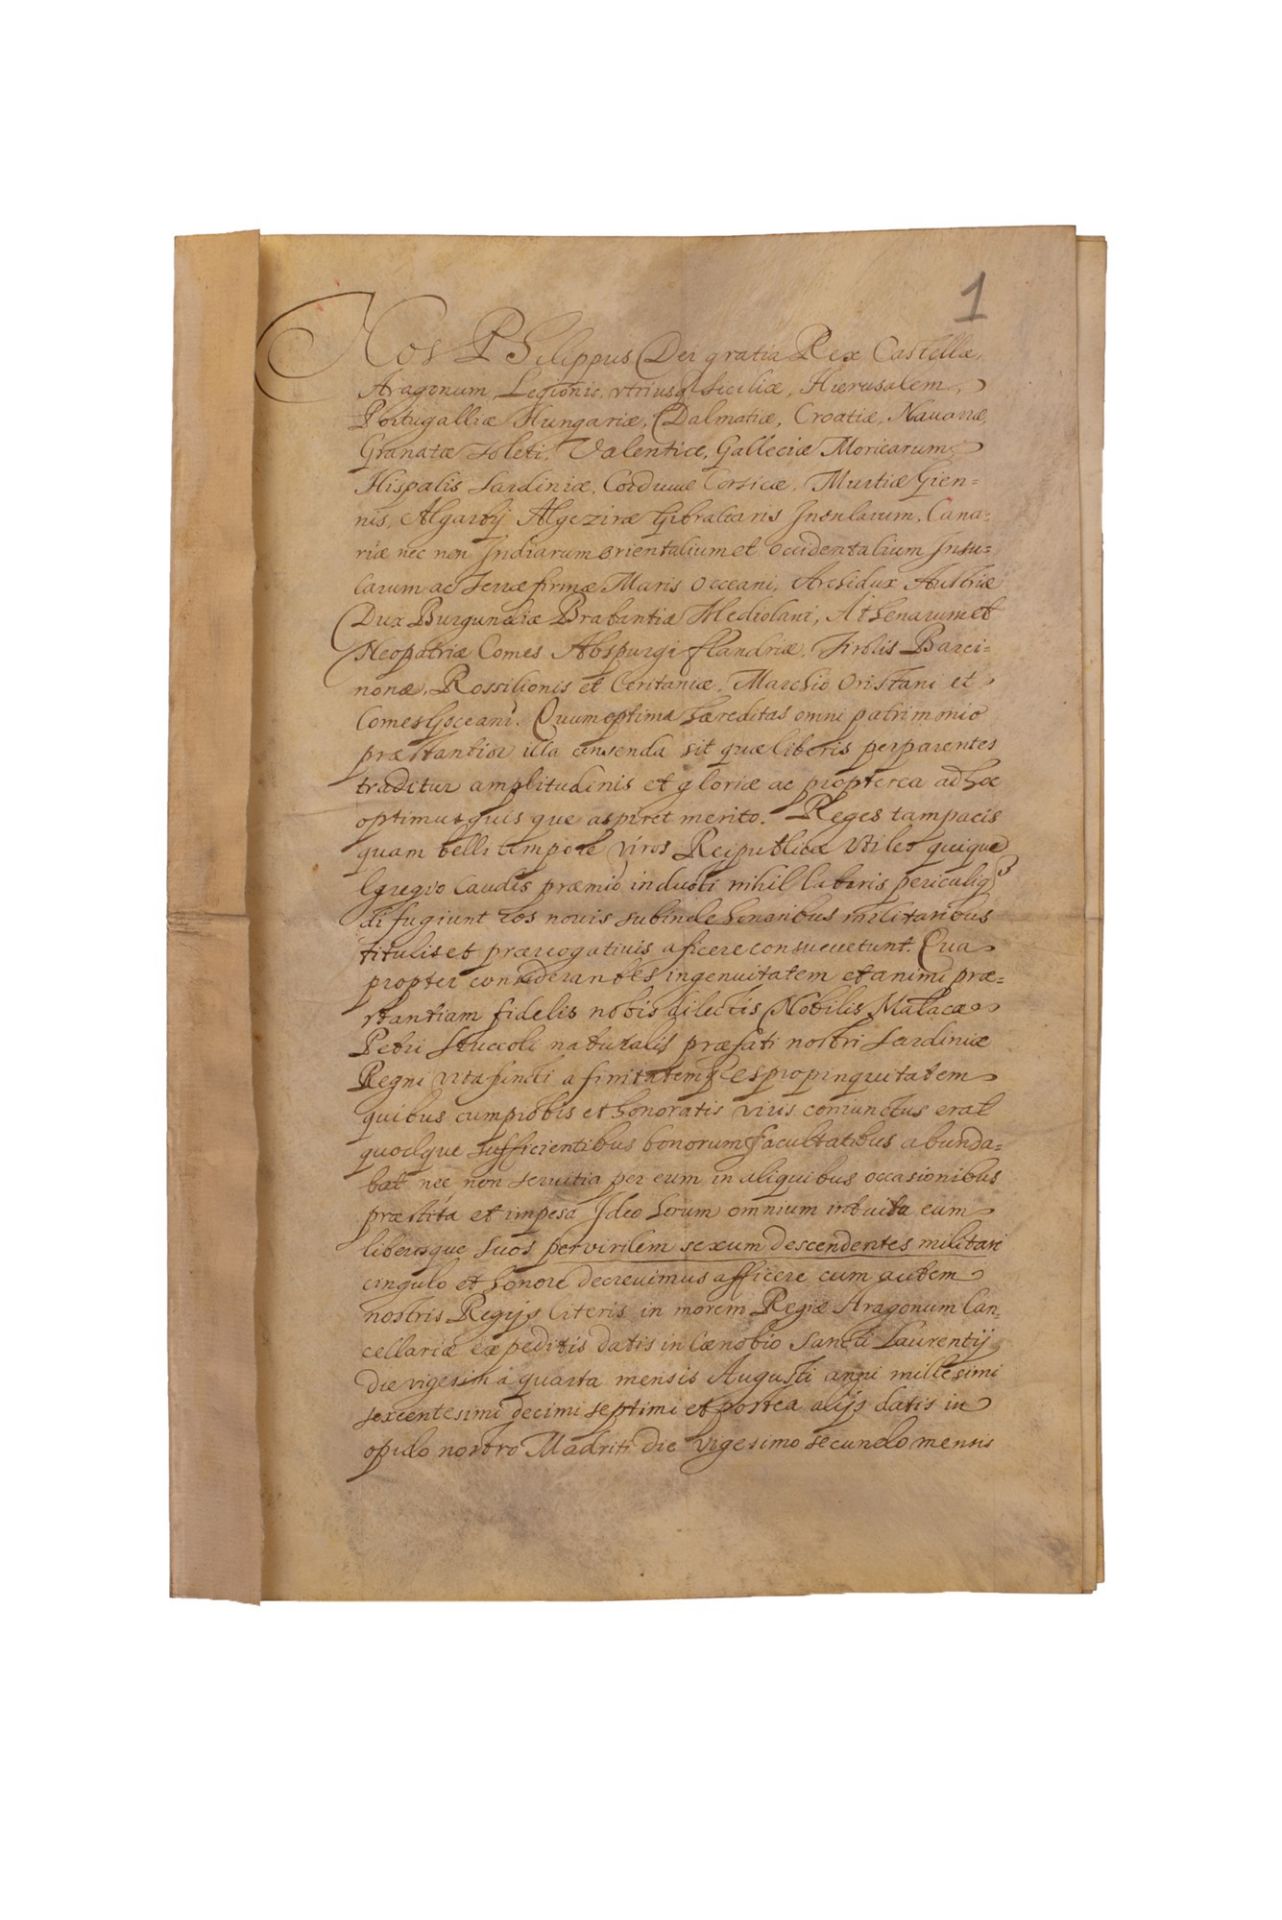 1
Nos Philippus Dei gratia Rex Castellæ,
Aragonum, Legionis, vtriusq Siciliæ, Hierusalem,
Portugalliæ Hungariæ, Dalmatiæ, Croatiæ, Nauarræ,
Granatæ Toleti, Valentiæ, Galleciæ Moricarum,
Hispalis Sardiniæ, Corduuæ Corsicæ, Murtiæ Gien=
nis, Algarbij Algeziræ Gibraltaris Insularum, Cana=
riæ nec non Indiarum orientalium et occidentalium Insu=
larum ac Terræfirmæ Maris Occeani, Archidux Austriæ
Dux Burgundiæ Brabantiæ Mediolani, Athenarum et
Neopatriæ Comes Abspurgi flandriæ, Tirolis Barci=
nonæ, Rossilionis et Ceritaniæ, Marchio Oristani et
Comes Goceani. Quum optima hæreditas omni patrimonio
præstantior illa censenda sit quæ liberis per parentes
traditur amplitudinis et gloriæ ac propterea ad hoc
optimus quis que aspiret merito. Reges tam pacis
quam belli tempore viros Reipublicæ vtiles quique
Egregio laudis præmio inducti nihil laboris periculiq
difugiunt hos nouis subinde honoribus militaribus
titulis et prærrogatiuis aficere consueuerunt. Qua
propter considerantes ingenuitatem et animi præ=
stantiam fidelis nobis dilectis Nobilis Matacæ
Petri Stuccoli naturalis præfati nostri Sardiniæ
Regni vita functi afinitatemq et propinquitatem
quibus cum probis et honoratis viris coniunctus erat
quodque sufficientibus bonorum facultatibus abunda=
bat nec non seruitia per eum in aliquibus occasionibus
præstita et impesa Ideo horum omnium intuitu eum
liberosque suos per virilem sexum descendentes militari
cingulo et honore decreuimus afficere cum autem
nostris Regijs literis in morem Regiæ Aragonum Can=
cellariæ expeditis datis in Cænobio Sancti Laurentij
die vigesima quarta mensis Augusti anni millesimi
sexcentesimi decimi septimi et postea alijs datis in
opido nostro Madriti die vigesimo secundo mensis